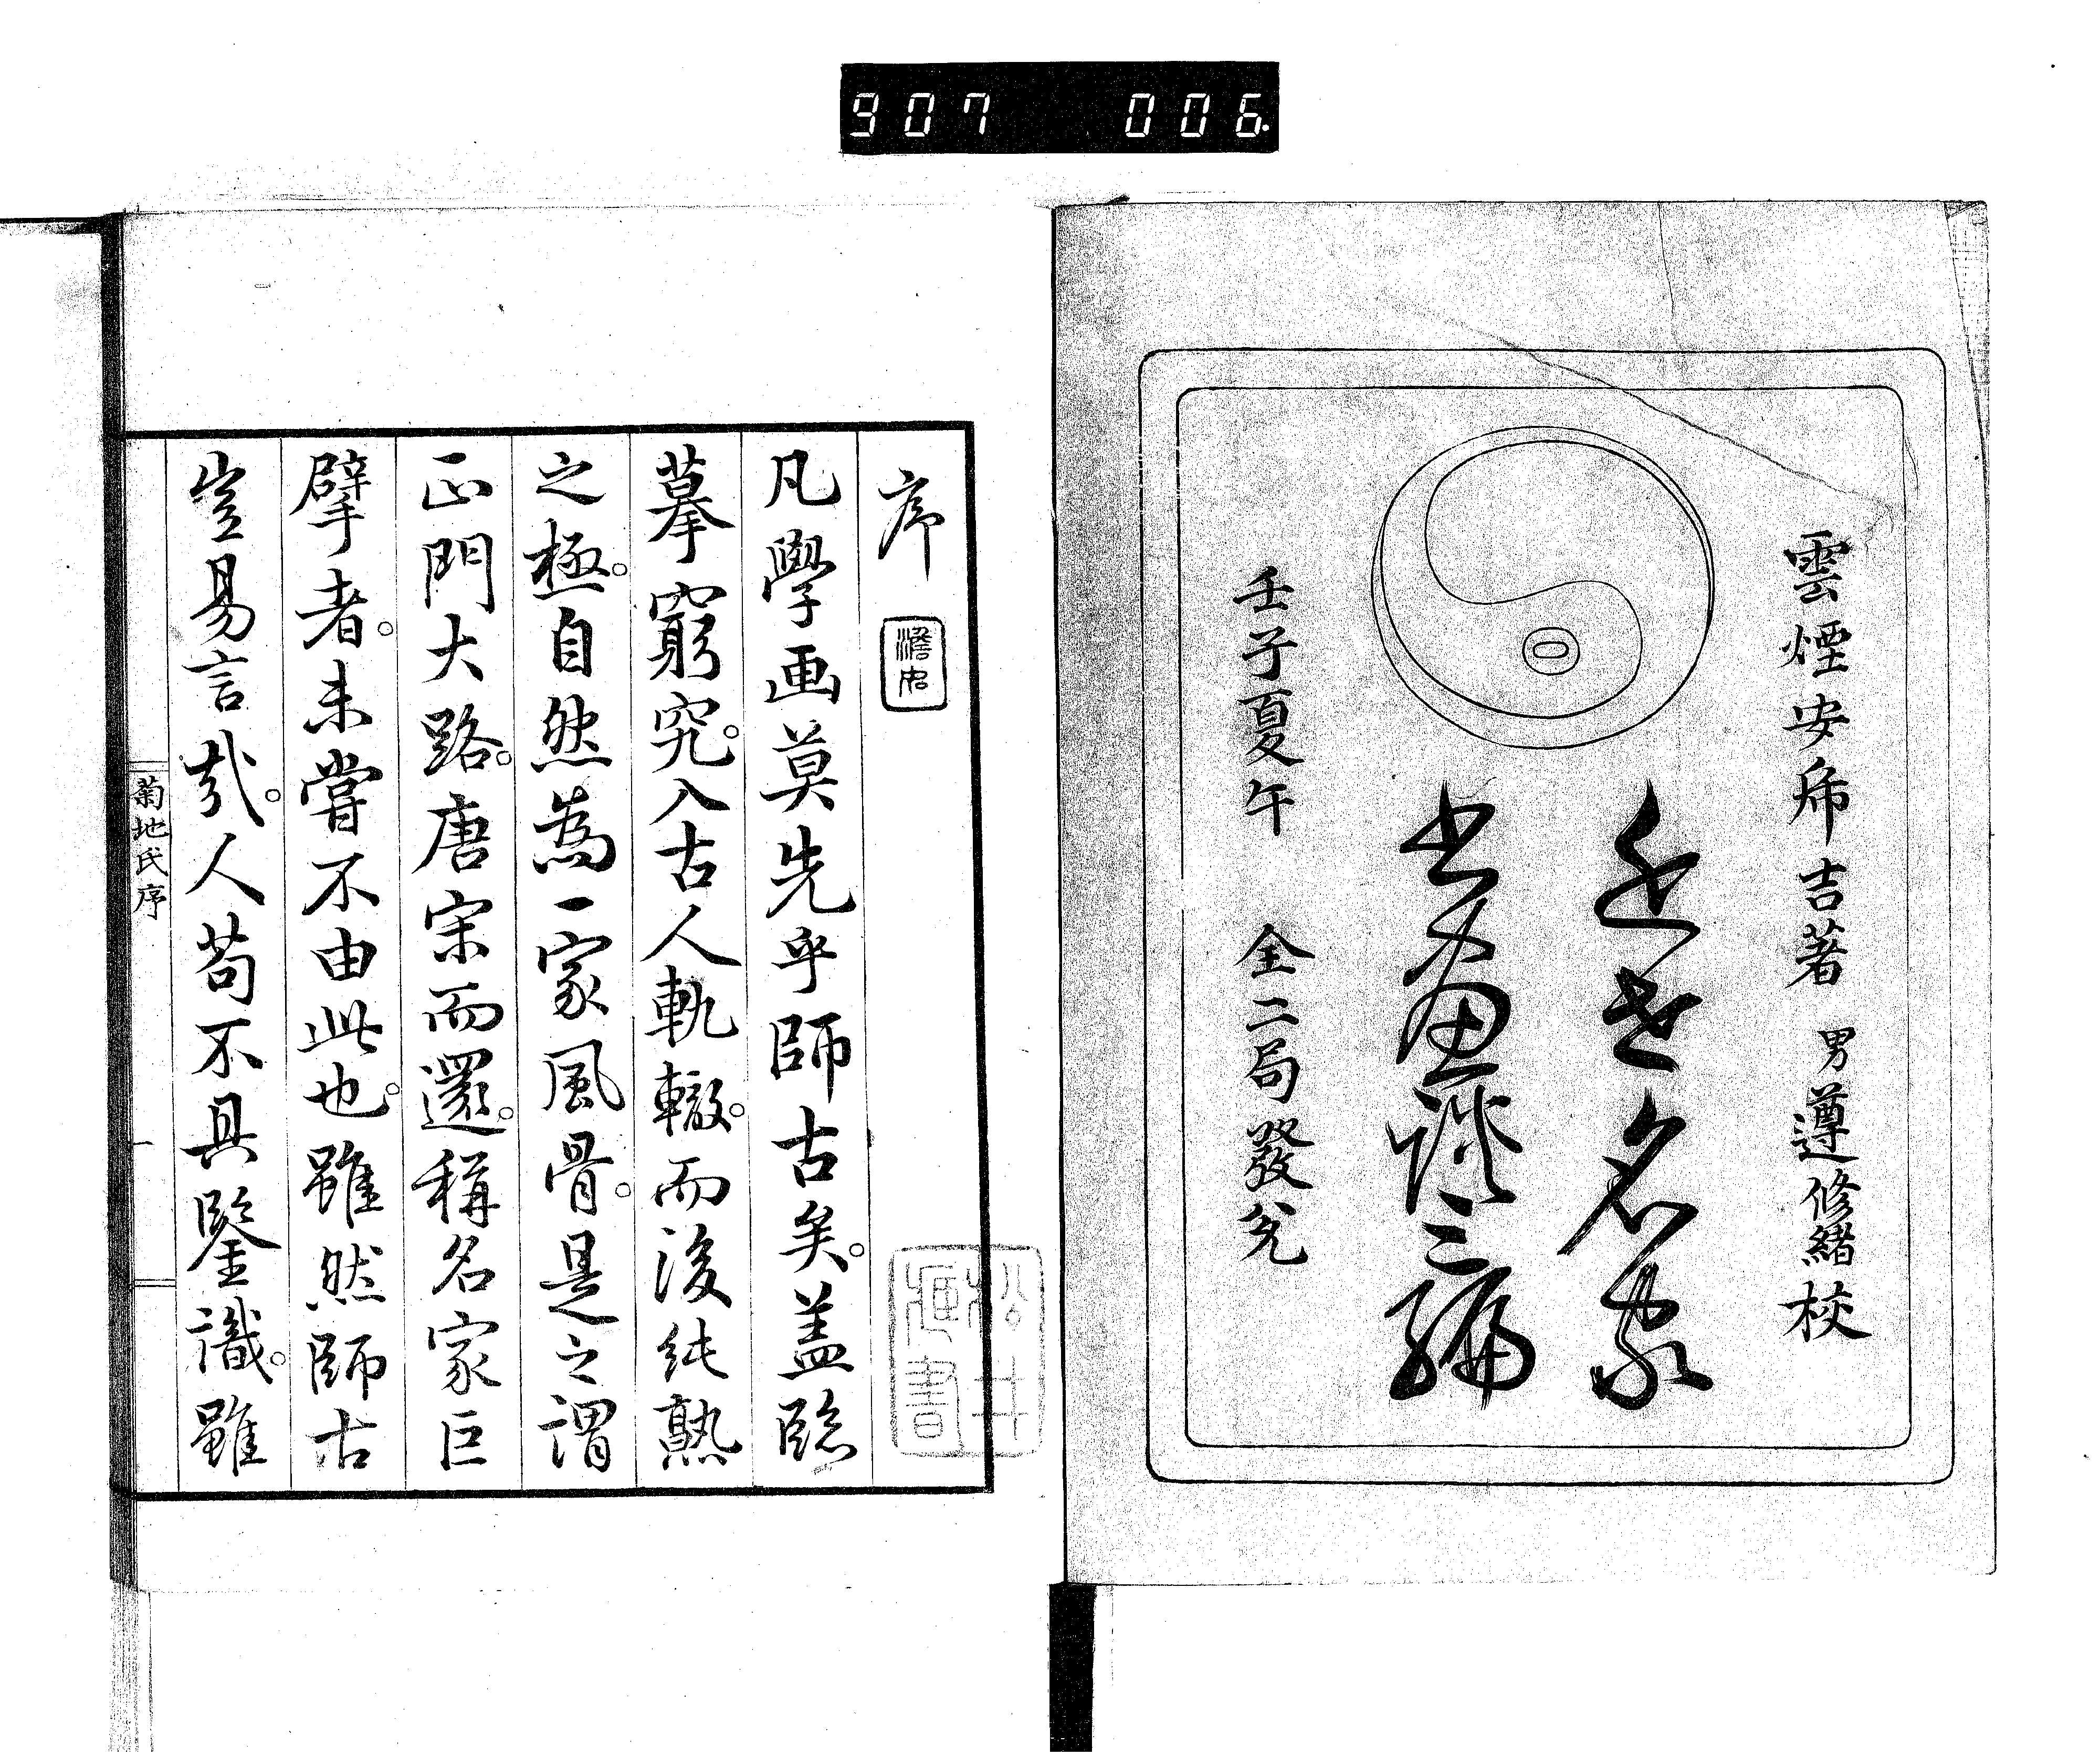 907 006.
雲煙安西於菟吉著 男遵修緒校
近世名家
書画談二編
壬子夏午 全二局發兌
序
凡學画莫先乎師古矣。盖臨
摹窮究。入古人軌轍。而後純熟
之極。自然為一家風骨。是之謂
正門大路。唐宋而還。稱名家巨
擘者。未嘗不由此也。雖然師古
豈易言哉。人苟不具鑒識。雖
菊地氏序
一
松井
藏書